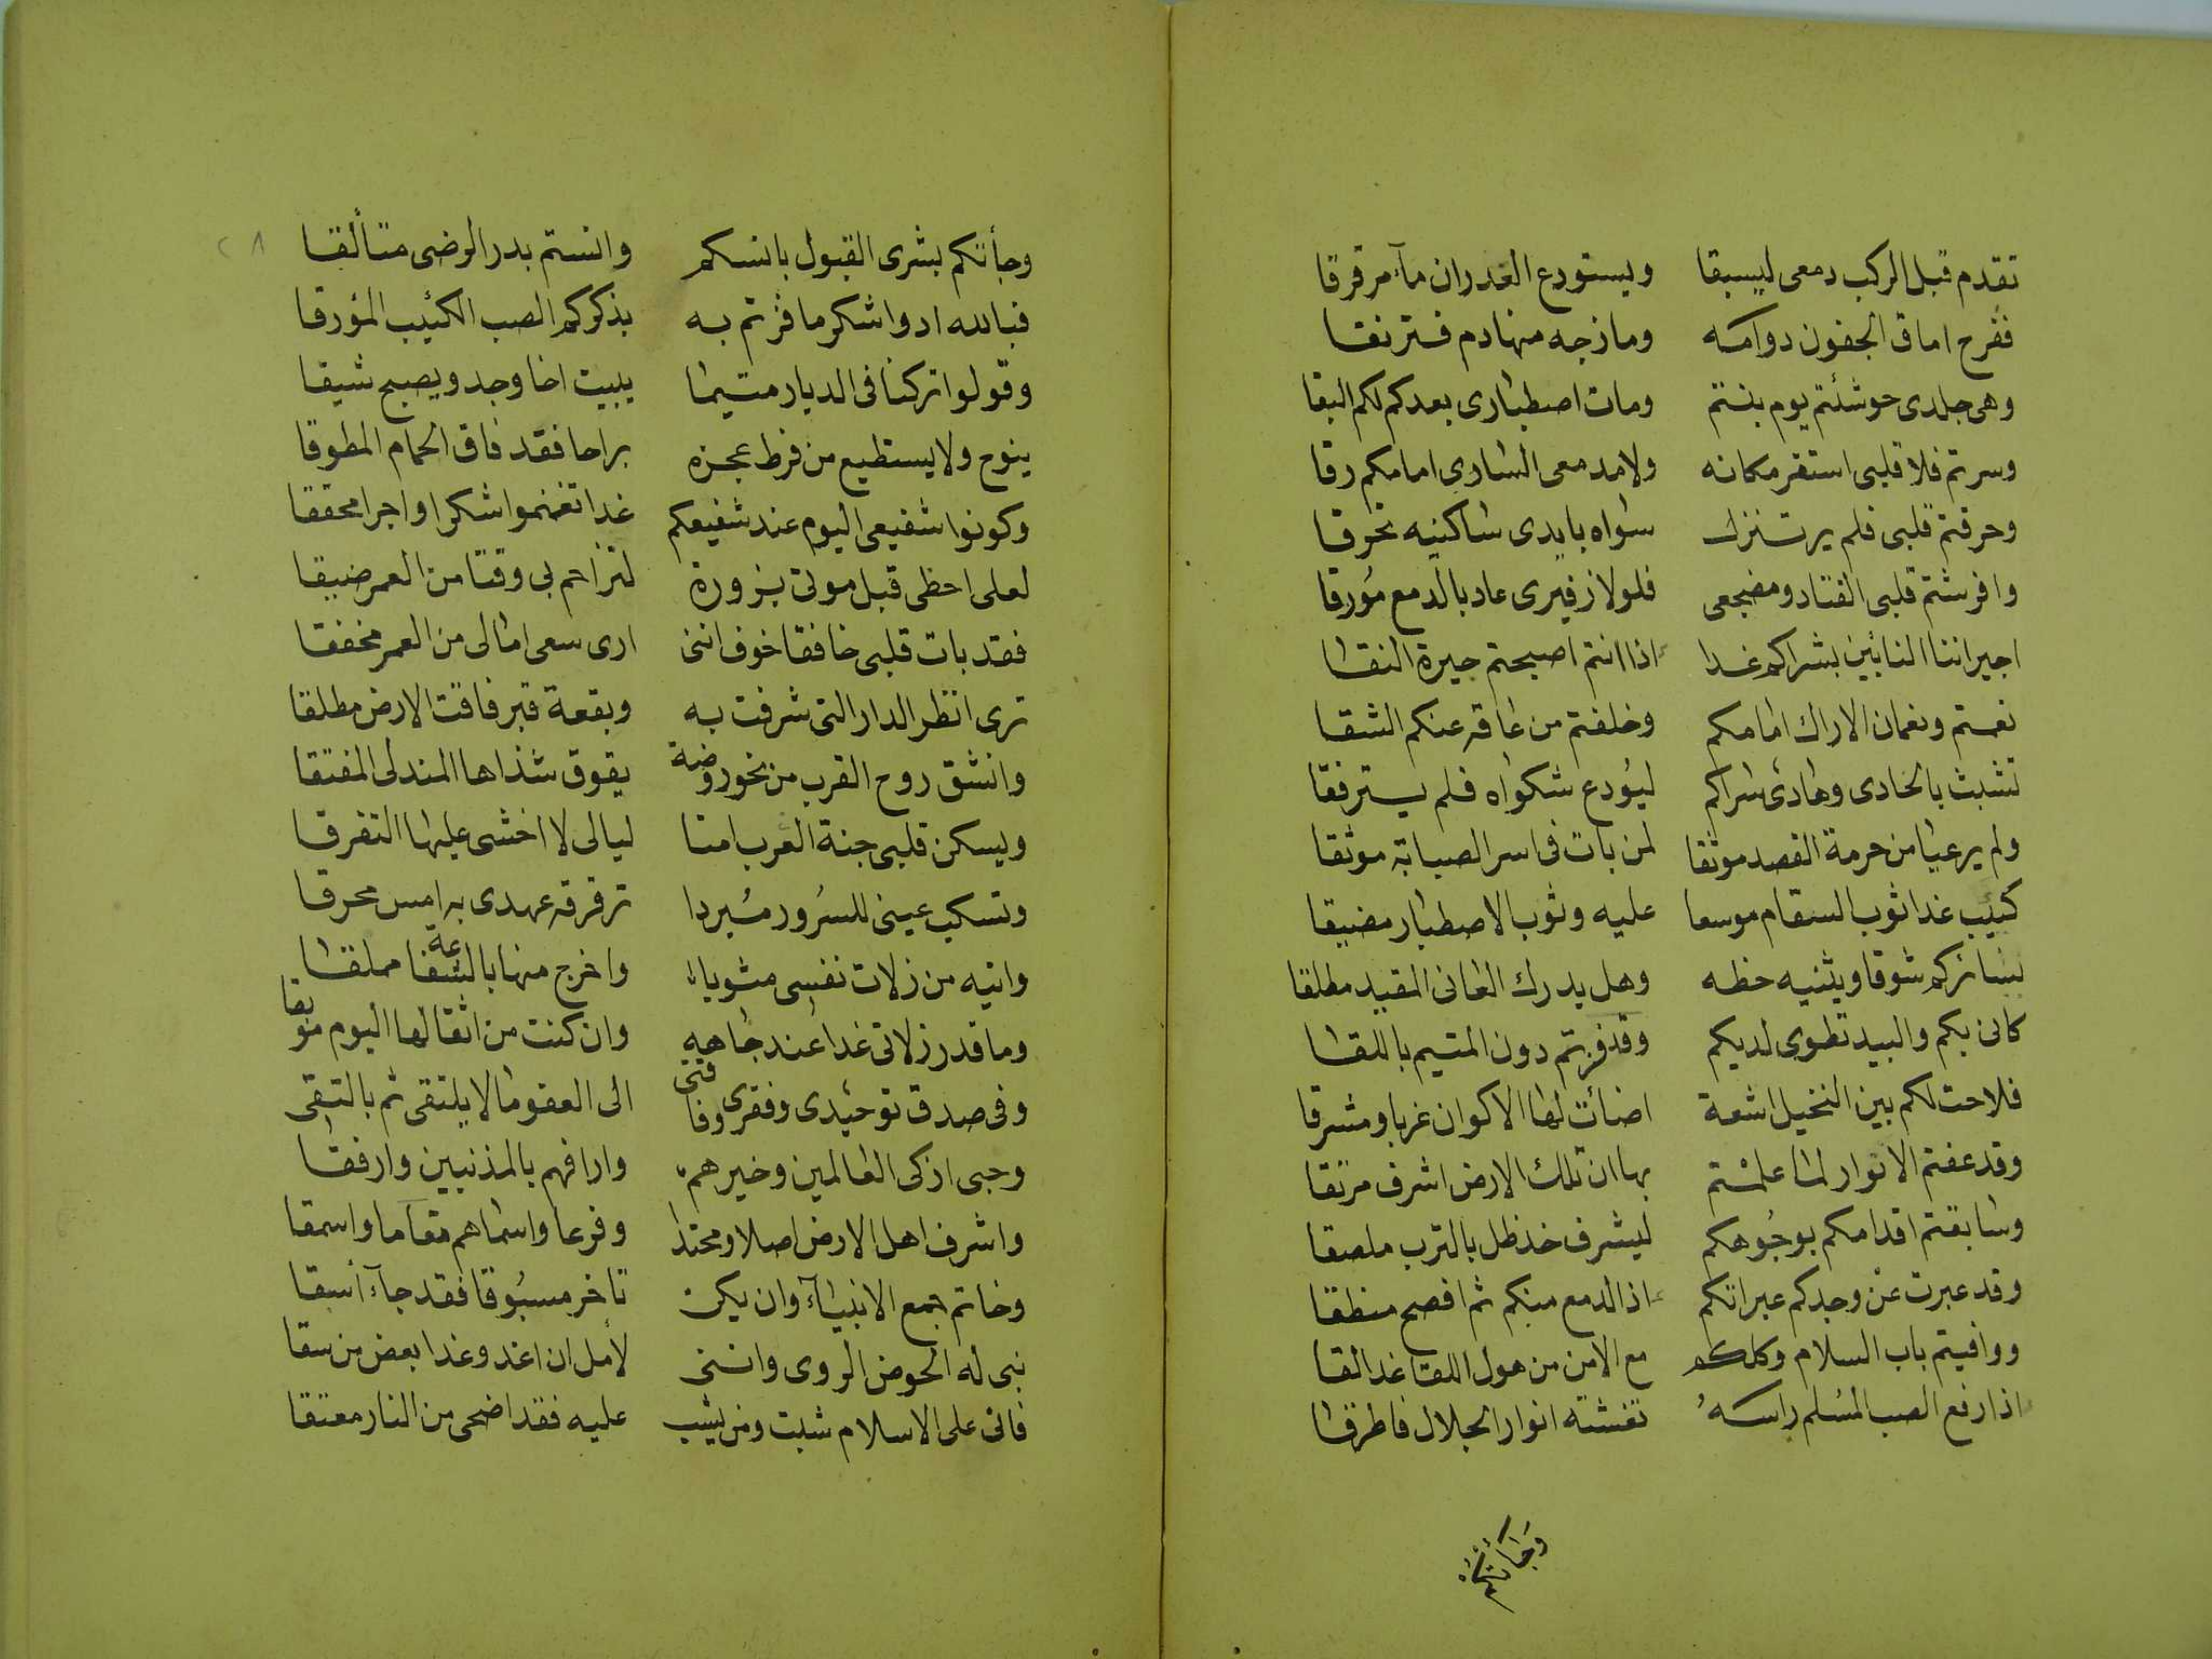 تقدم قبل الركب دمعى ليسبقا ويستودع الغدران مآء مرقرقا
فقرح اماق الجفون دوامه ومازجه منها دم فترنقا
وهى جلدى حوشئتم يوم بنتم ومات اصطبارى بعدكم لكم البقا
وسرتم فلا قلبى استقر مكانه ولا مدمعى السارى امامكم رقا
وحرقتم قلبى فلم يرت نزل سواه بايدى ساكنيه تحرقا
وافرشتم قلبى القتاد ومضجعى فلولا زفيرى عاد بالدمع مؤرقا
اجيراننا النائين بشراكم غدا اذا انتم اصبحتم جيرة النقا
نعمتم ونعمان الاراك امامكم وخلفتم من عاقه عنكم الشقا
تشبث بالحادى وهادى سراكم ليؤدع شكواه فلم يسترفقا
ولم يرعيا من حرمة القصد موثقا لمن بات فى اسر الصبابة موثقا
كئيب غدا ثوب السقام موسعا عليه وثوب الاصطبار مضيقا
يسايركم شوقا ويثنيه حظه وهل يدرك العانى المقيد مطلقا
كانى بكم والبيد تطوى لديكم وقد فزتم دون المتيم باللقا
فلاحت لكم بين النخيل اشعة اضائت لها الاكوان غربا ومشرقا
وقد عفتم الانوار لما علمتم بها ان تلك الارض اشرف مرتقا
وسابقتم اقدامكم بوجوهكم ليشرف خد ظل بالترب ملصقا
وقد عبرت عن وجدكم عبراتكم اذ الدمع منكم ثم افصح منطقا
ووافيتم باب السلام وكلكم مع الامن من هول اللقا غدا لقا
اذا رفع الصب المسلم راسه تغشته انوار الجلال فاطرقا
وجأتكم
وجأتكم بشرى القبول بانسكم وانستم بدر الرضى متألقا
فبالله ادوا شكر ما فزتم به بذكركم الصب الكئيب المؤرقا
وقولوا تركنا فى الديار متيما يبيت اخا وجد ويصبح شيقا
ينوح ولا يستطيع من فرط عجزه براحا فقد فاق الحمام المطوقا
وكونوا شفيعى اليوم عند شفيعكم غدا تغنموا شكرا واجرا محققا
لعلى احظى قبل موتى بزورة لتزاحم بى وقتا من العمر ضيقا
فقد بات قلبى خافقا خوف اننى ارى سعى امالى من العمر مخفقا
ترى انظر الدار التى شرفت به وبقعة قبر فاقت الارض مطلقا
وانشق روح القرب من نحو روضة يفوق شذاها المندلى المفتقا
ويسكن قلبى جنة القرب امنا ليالى لا اخشى عليها التفرقا
وتسكب عينى للسرور مبردا ترقرقه عهدى به امس محرقا
واتيه من زلات نفسى مثريا واخرج منها بالشفاعة مملقا
وما قدر زلاتى غدا عند جاهه وان كنت من اثقالها اليوم موبقا
وفى صدق توحيدى وفقرى وفاقتى الى العفو ما لا يلتقى ثم بالتقى
وحبى ازكى العالمين وخيرهم وارافهم بالمذنبين وارفقا
واشرف اهل الارض اصلا ومحتدا وفرعا واسماهم مقاما واسمقا
وخاتم جمع الانبيآء وان يكن تاخر مسبوقا فقد جآء اسبقا
نبى له الحوض الروى واننى لأمل ان اغدو غدا بعض من سقا
فانى على الاسلام شبت ومن يشب عليه فقد اضحى من النار معتقا